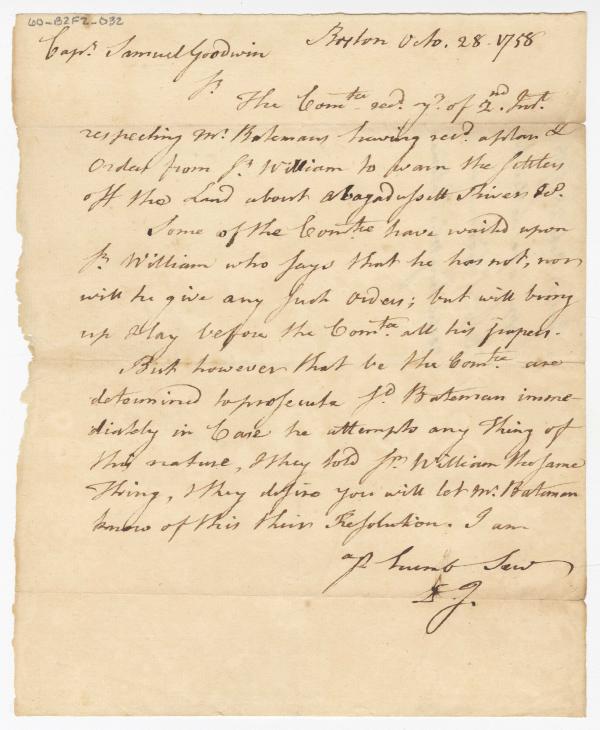 60-B2F2-D32
Boston Octo. 28. 1758
Capt. Samuel Goodwin
Sr.
The Comtee recd. yrs. of 2nd. Inst.
respecting Mr. Batemans having recd. a plan &
Order from Sr. William to warn the Settlers
off the Land about Abagadussett River &c.
Some of the Comtee have waited upon
Sr. William who says that he has not, nor
will he give any such orders; but will bring
up & lay before the Comtee all his papers.
But however that be the Comtee are
determined to prosecute sd. Bateman imme-
diately in Case he attempts any Thing of
this nature, & they told Sr. William the same
Thing, & they desire you will let Mr. Bateman
know of this their Resolution. I am
Sr. humb Serv